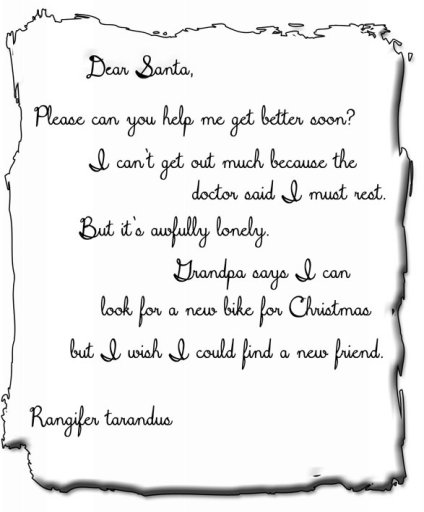 Dear Santa,
Please can you help me get better soon?
I can't get out much because the
doctor said I must rest.
But it's awfully lonely.
Grandpa says I can
look for a new bike for Christmas
but I wish I could find a new friend.
Rangifer tarandus